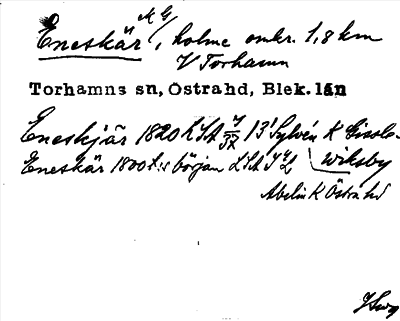 M G
Eneskär /, holme omkr. 1,8 km
V Torhamn
Torhamns sn, Östra hd, Blek. län
Eneskjär 1820 LSA 13¹ Sylvén K
Eneskär 1800 t:s början LSA wiksby
Abelin K Östra hd